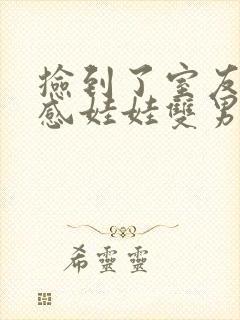 撿到了室友
感娃娃雙男
希靈靈